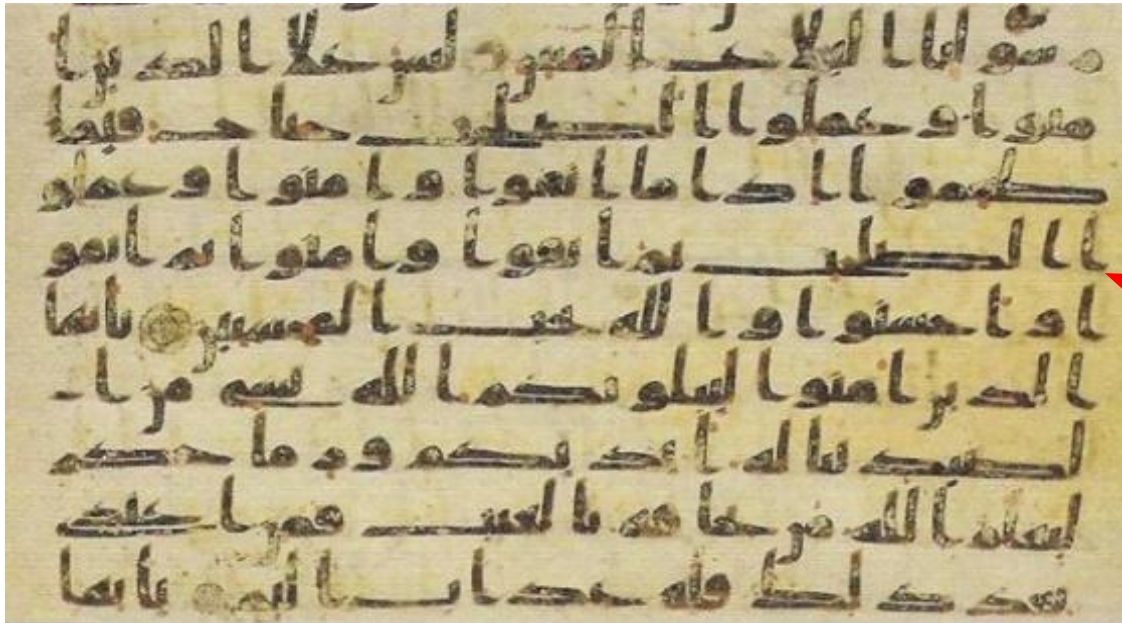 رسولنا البلاغ المبين ليس على الذين ا
منوا وعملوا الصلحت جناح فيما
طعموا اذا ما اتقوا وامنوا وعملو
ا الصلحت ثم اتقوا وامنوا ثم اتقو
ا واحسنوا والله يحب المحسنين يايها
الذين امنوا ليبلونكم الله بشيء من ا
لصيد تناله ايديكم ورماحكم
ليعلم الله من يخافه بالغيب فمن اعتدى
بعد ذلك فله عذاب اليم يايها